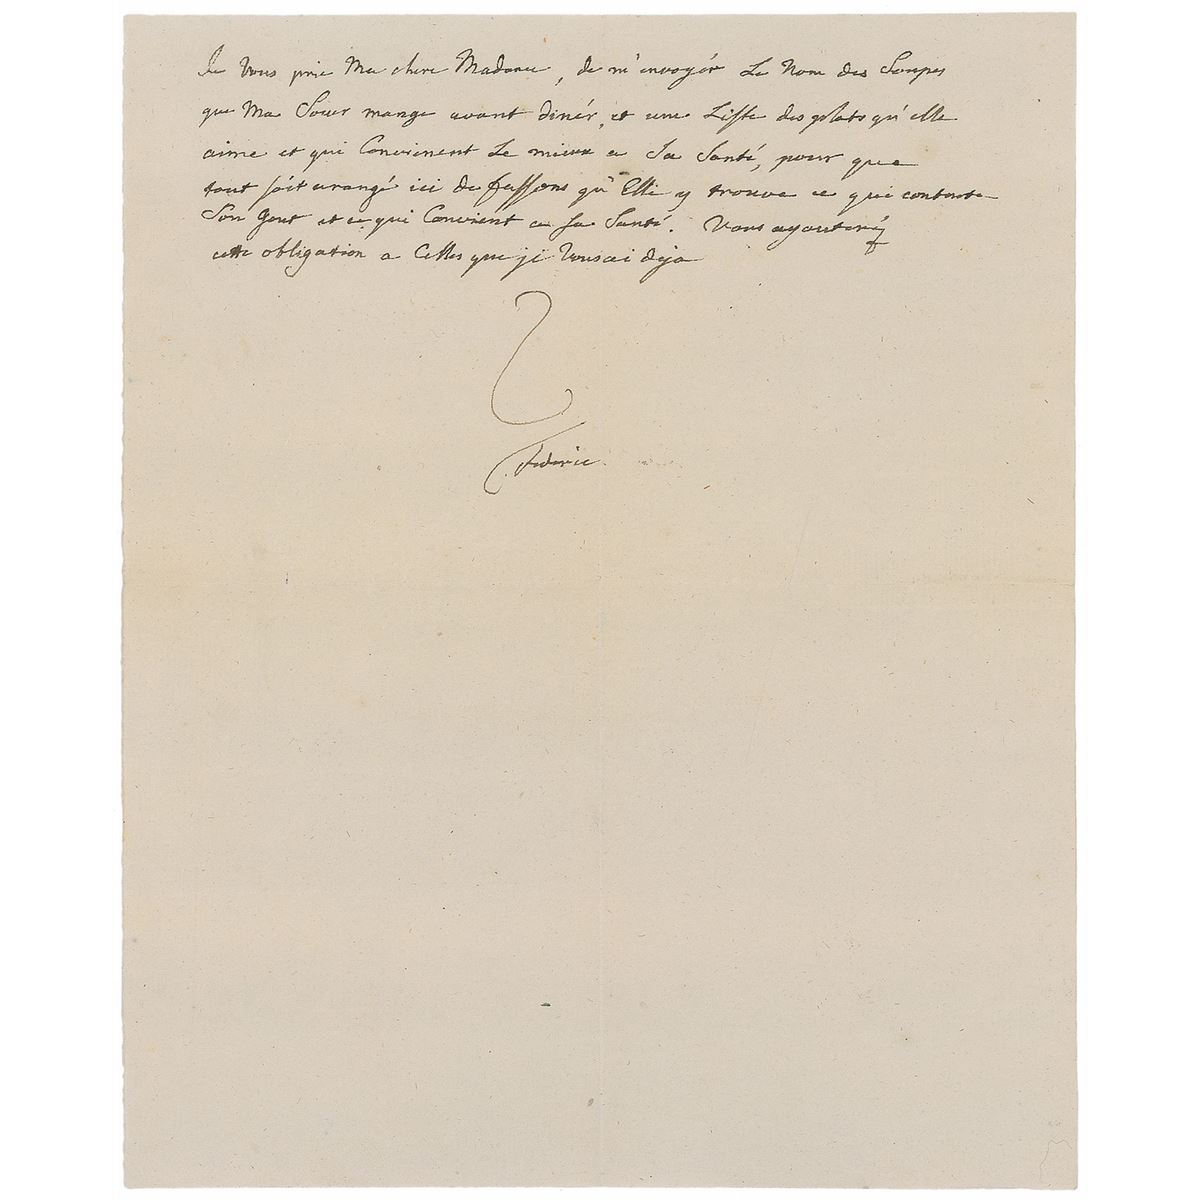 Je Vous prie Ma chere Madame, de m'envoyér Le Nom des Soupes
que Ma Soeur mange avant dinér, et une Liste des plats qu'elle
aime et qui Conviennent Le mieux a Sa Santé, pour que
tout soit arangé ici de fassons qu'Elle y trouve ce qui contente
Son Gout et ce qui Convient a Sa Santé. Vous ajouteréz
cette obligation a Celles que je Vous ai deja
Federic